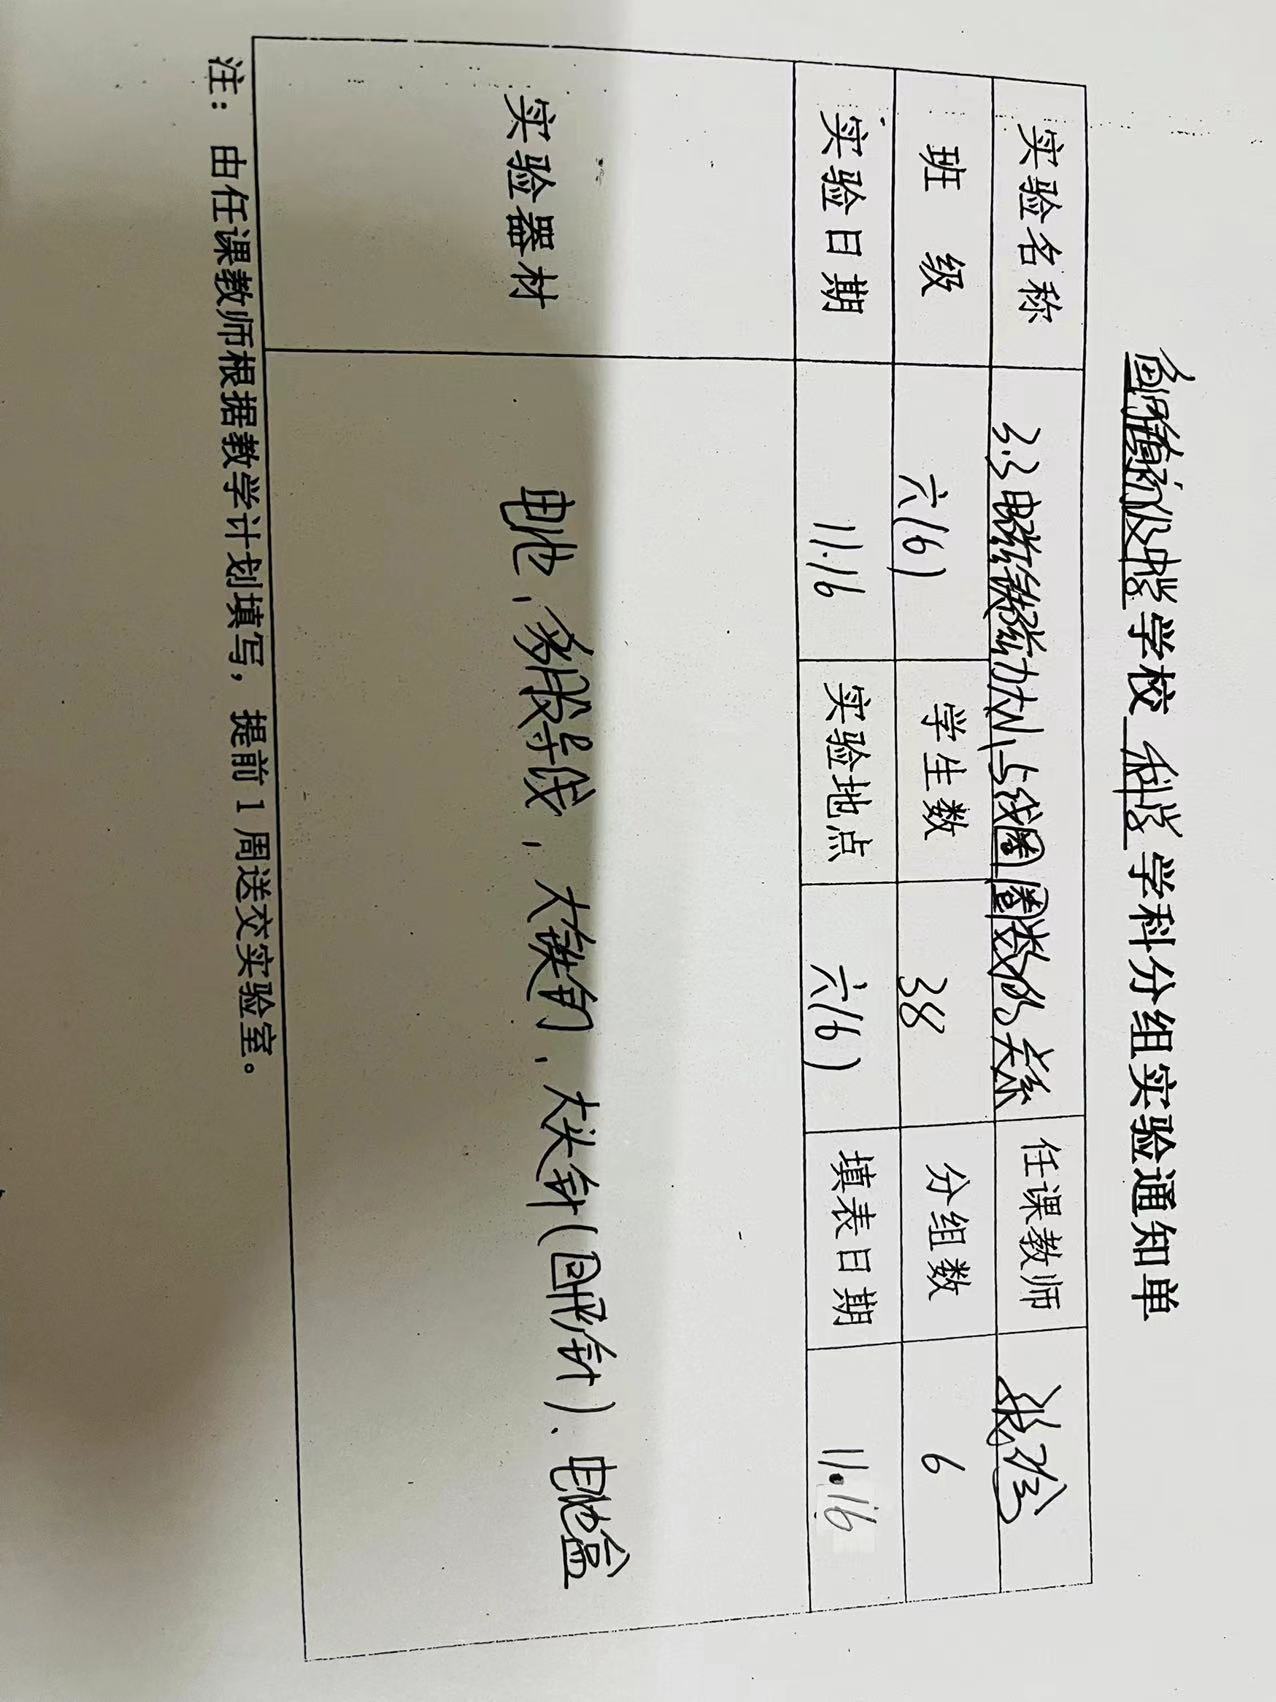 学校 科学 学科分组实验通知单
实验名称 3.3电磁铁磁力大小与线圈圈数的关系 任课教师
班 级 六(6) 学生数 38 分组数 6
实验日期 11.16 实验地点 六(6) 填表日期 11.16
实验器材 电池、多股导线、大铁钉、大头针(回形针)、电池盒
注：由任课教师根据教学计划填写，提前1周送交实验室。